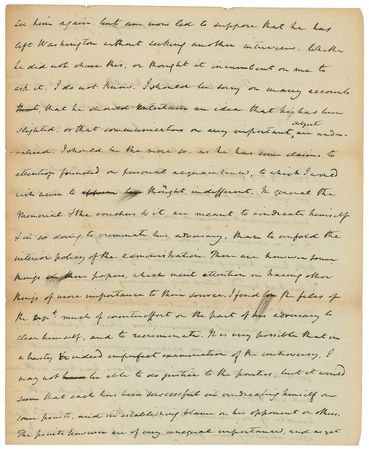 see him again. but am now led to suppose that he has
left Washington without seeking another interview. Whether
he did not chuse this, or thought it incumbent on me to
ask it, I do not know. I should be sorry on many accounts
that, that he should entertain an idea that he has been
slighted, or that communications on any important object are under-
valued. I should be the more so, as he has some claims to
attention founded on personal acquaintance, to which I would
wish never to be thought indifferent. In general the
Memorial & the vouchers to it, are meant to vindicate himself
& in so doing to criminate his adversary, than to unfold the
interior policy of the administration. There are however some
things in these papers, which merit attention in tracing other
things of more importance to their sources. I find on the files of
the Dept. much of counter effort on the part of his adversary to
clear himself, and to recriminate. It is very possible that in
a hasty, & indeed imperfect examination of the controversy, I
may not be able to do justice to the parties, but it would
seem that each has been successful in vindicating himself on
some points, and in establishing blame on his opponent on others.
The points however are of very unequal importance, and as yet